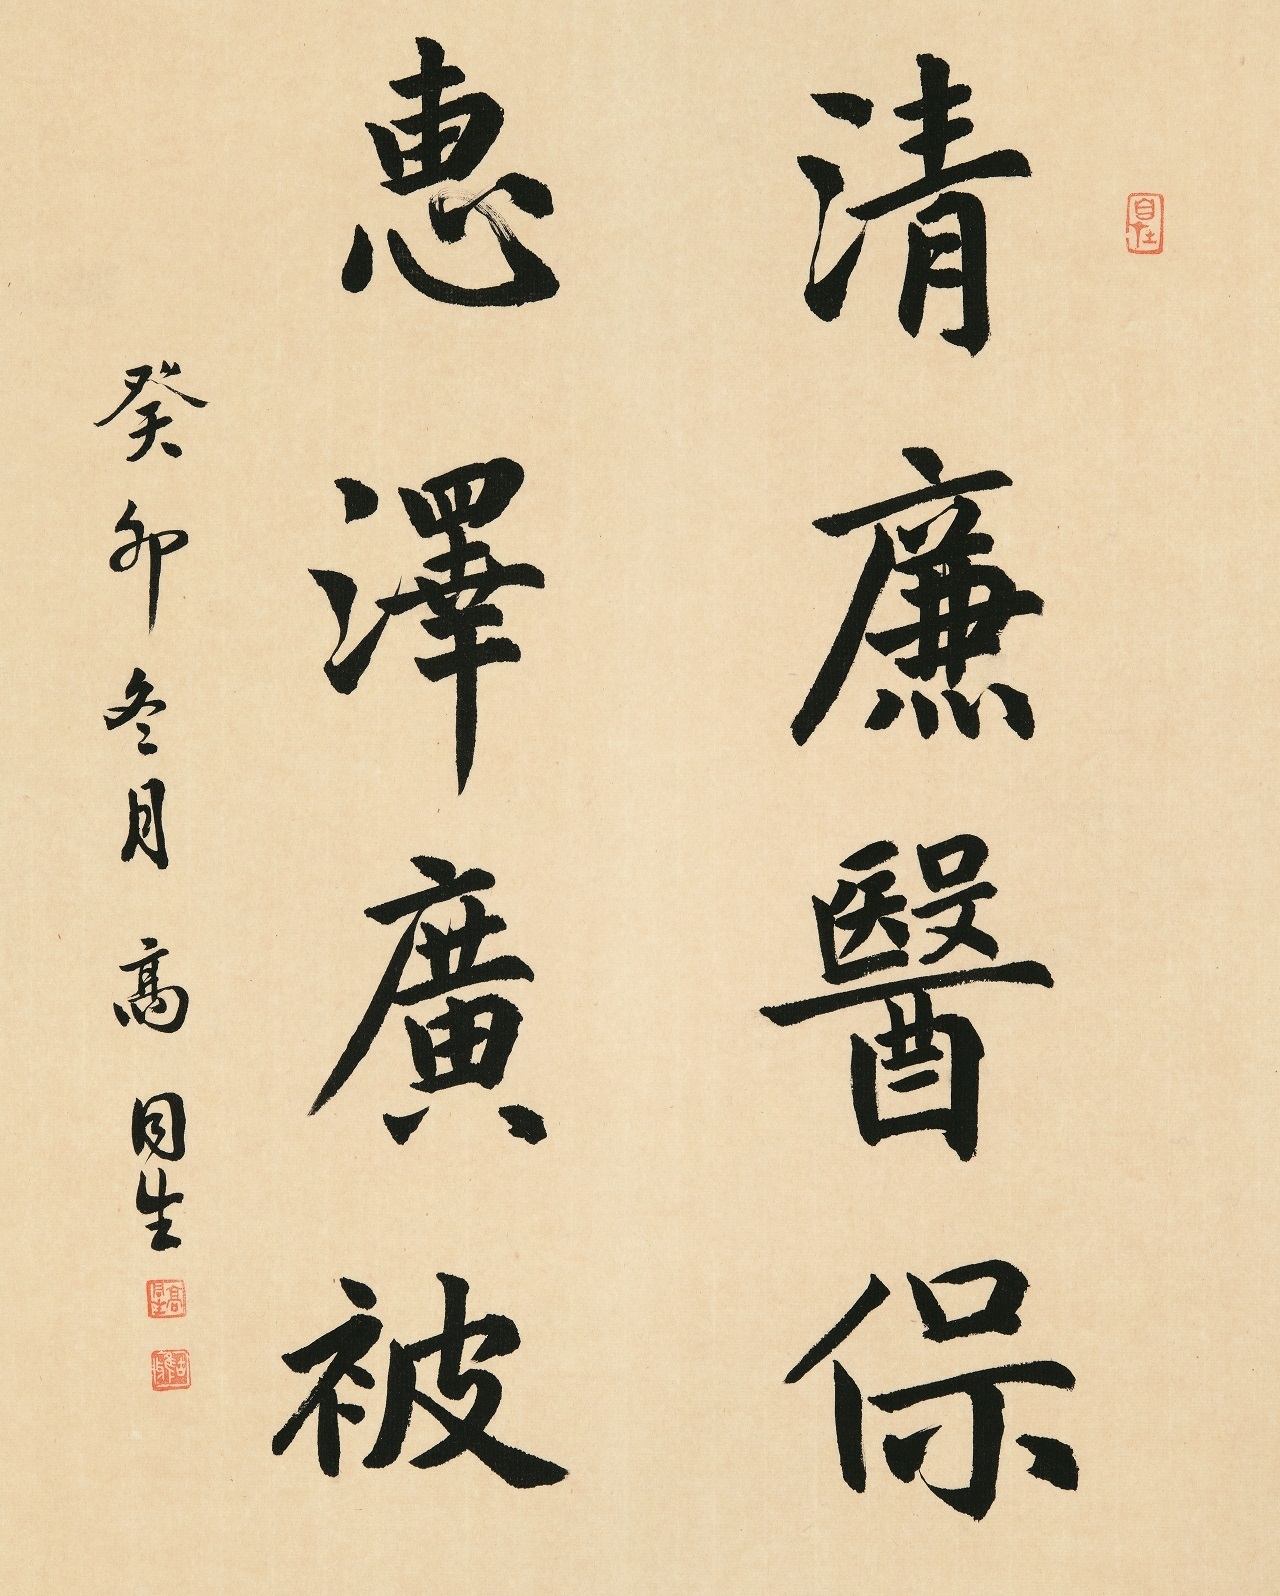 自在
清廉醫保
惠澤廣被
癸卯冬月高同生